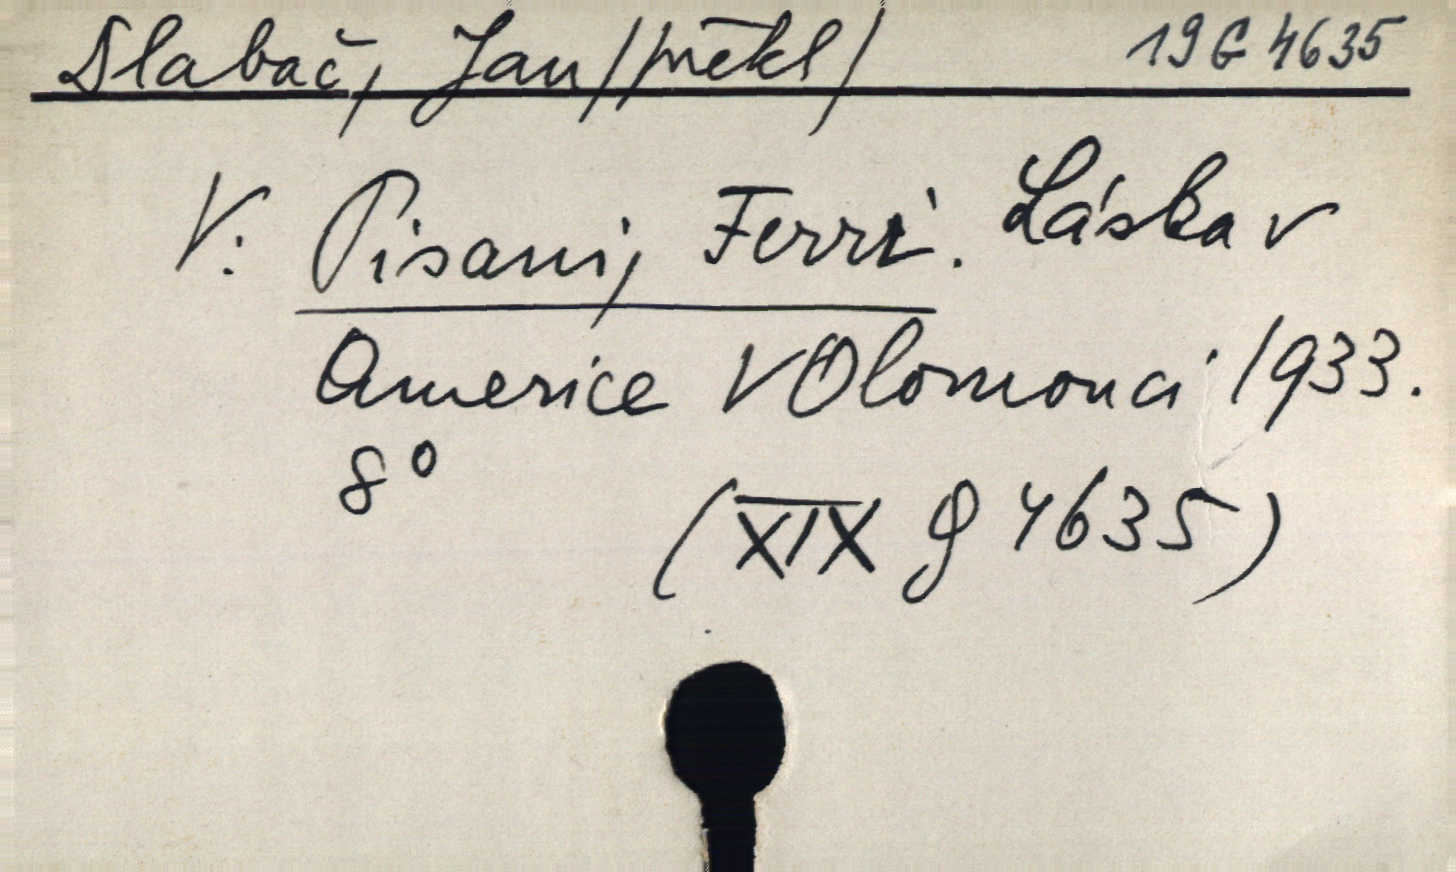 Slabač, Jan /překl/ 19 G 4635
V: Pisani, Ferri. Láska v
Americe V Olomouci 1933.
8°
(XIX G 4635)